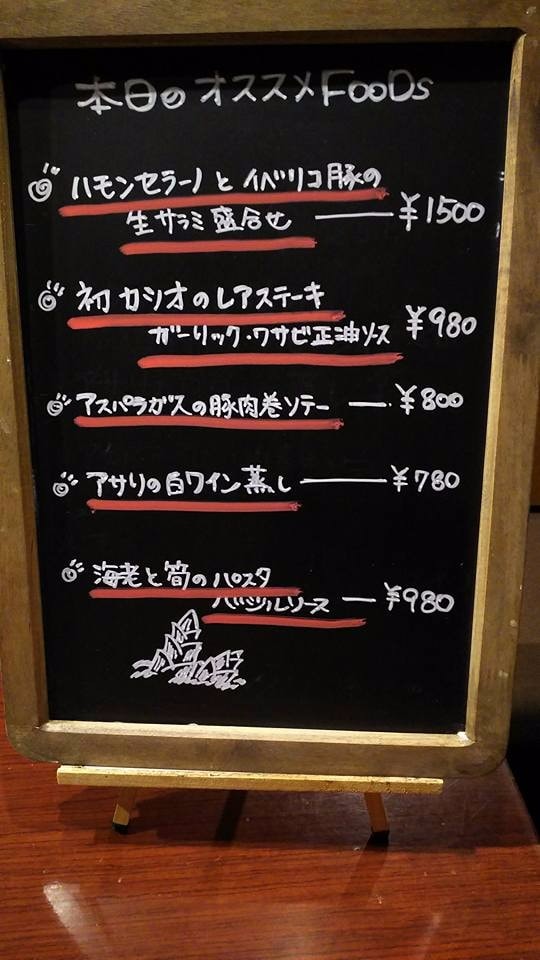 本日のオススメFOODS
ハモンセラーノとイベリコ豚の
生サラミ盛合せ ——— ¥1500
初カツオのレアステーキ
ガーリック・ワサビ正油ソース ¥980
アスパラガスの豚肉巻ソテー — ¥800
アサリの白ワイン蒸し ——— ¥780
海老と筍のパスタ
バジルソース — ¥980